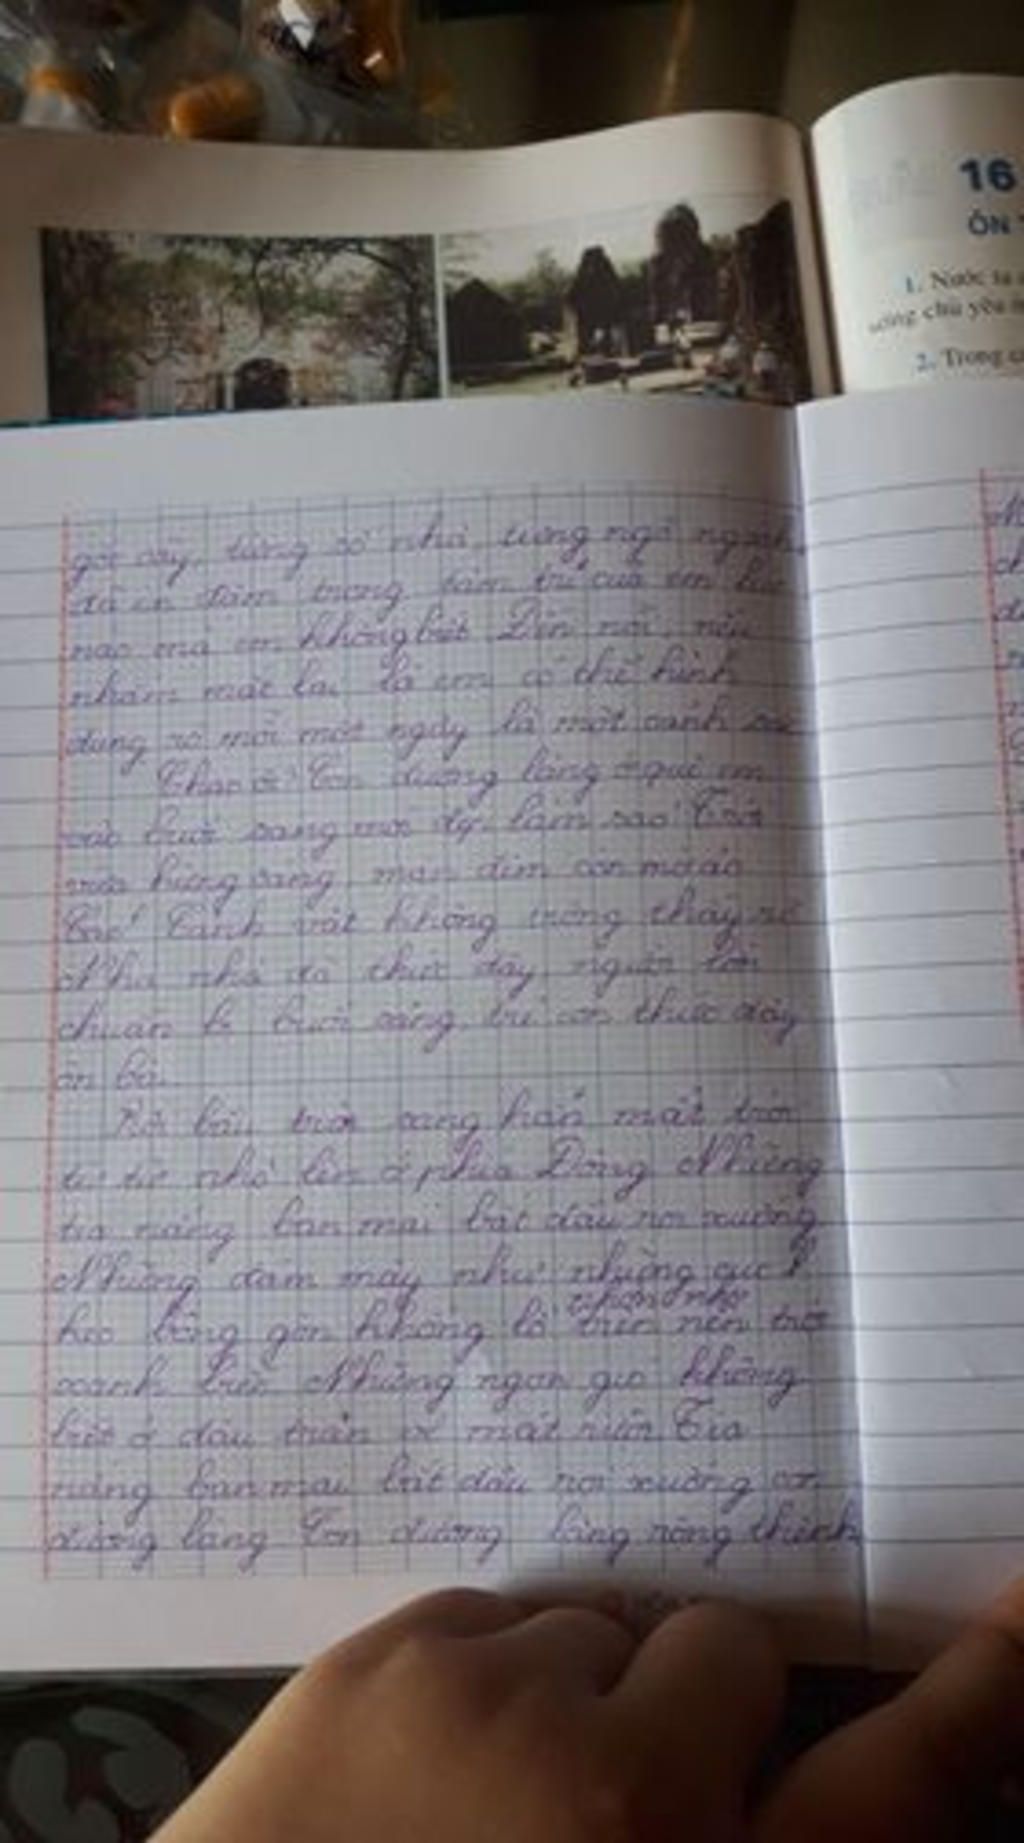 16
ÔN
1. Nước ta
sông chủ yếu
2. Trong
gốc cây, từng số nhà, từng ngõ ngách
đã in đậm trong tâm trí của em lúc
nào mà em không biết Đến nỗi, nếu
nhắm mắt lại là em có thể hình
dung rõ mỗi một ngày là một cảnh
Chao ôi! Con đường làng quê em
vào buổi sáng mới đẹp làm sao! Trời
vừa hửng sáng, màn đêm còn mờ ảo
Cảnh vật không trông thấy rõ
Nhà nhà đã thức dậy, người lớn
chuẩn bị buổi sáng, trẻ con thức dậy
ôn bài.
Rồi bầu trời sáng hẳn mặt trời
từ từ nhô lên ở phía Đông Những
tia nắng ban mai bắt đầu rơi xuống
Những đám mây như những que
kẹo bông gòn khổng lồ trên nền trời
xanh Những ngọn gió không
biết ở đâu tràn về mát rượi Tia
nắng ban mai bắt đầu rơi xuống con
đường làng Con đường làng rộng thênh